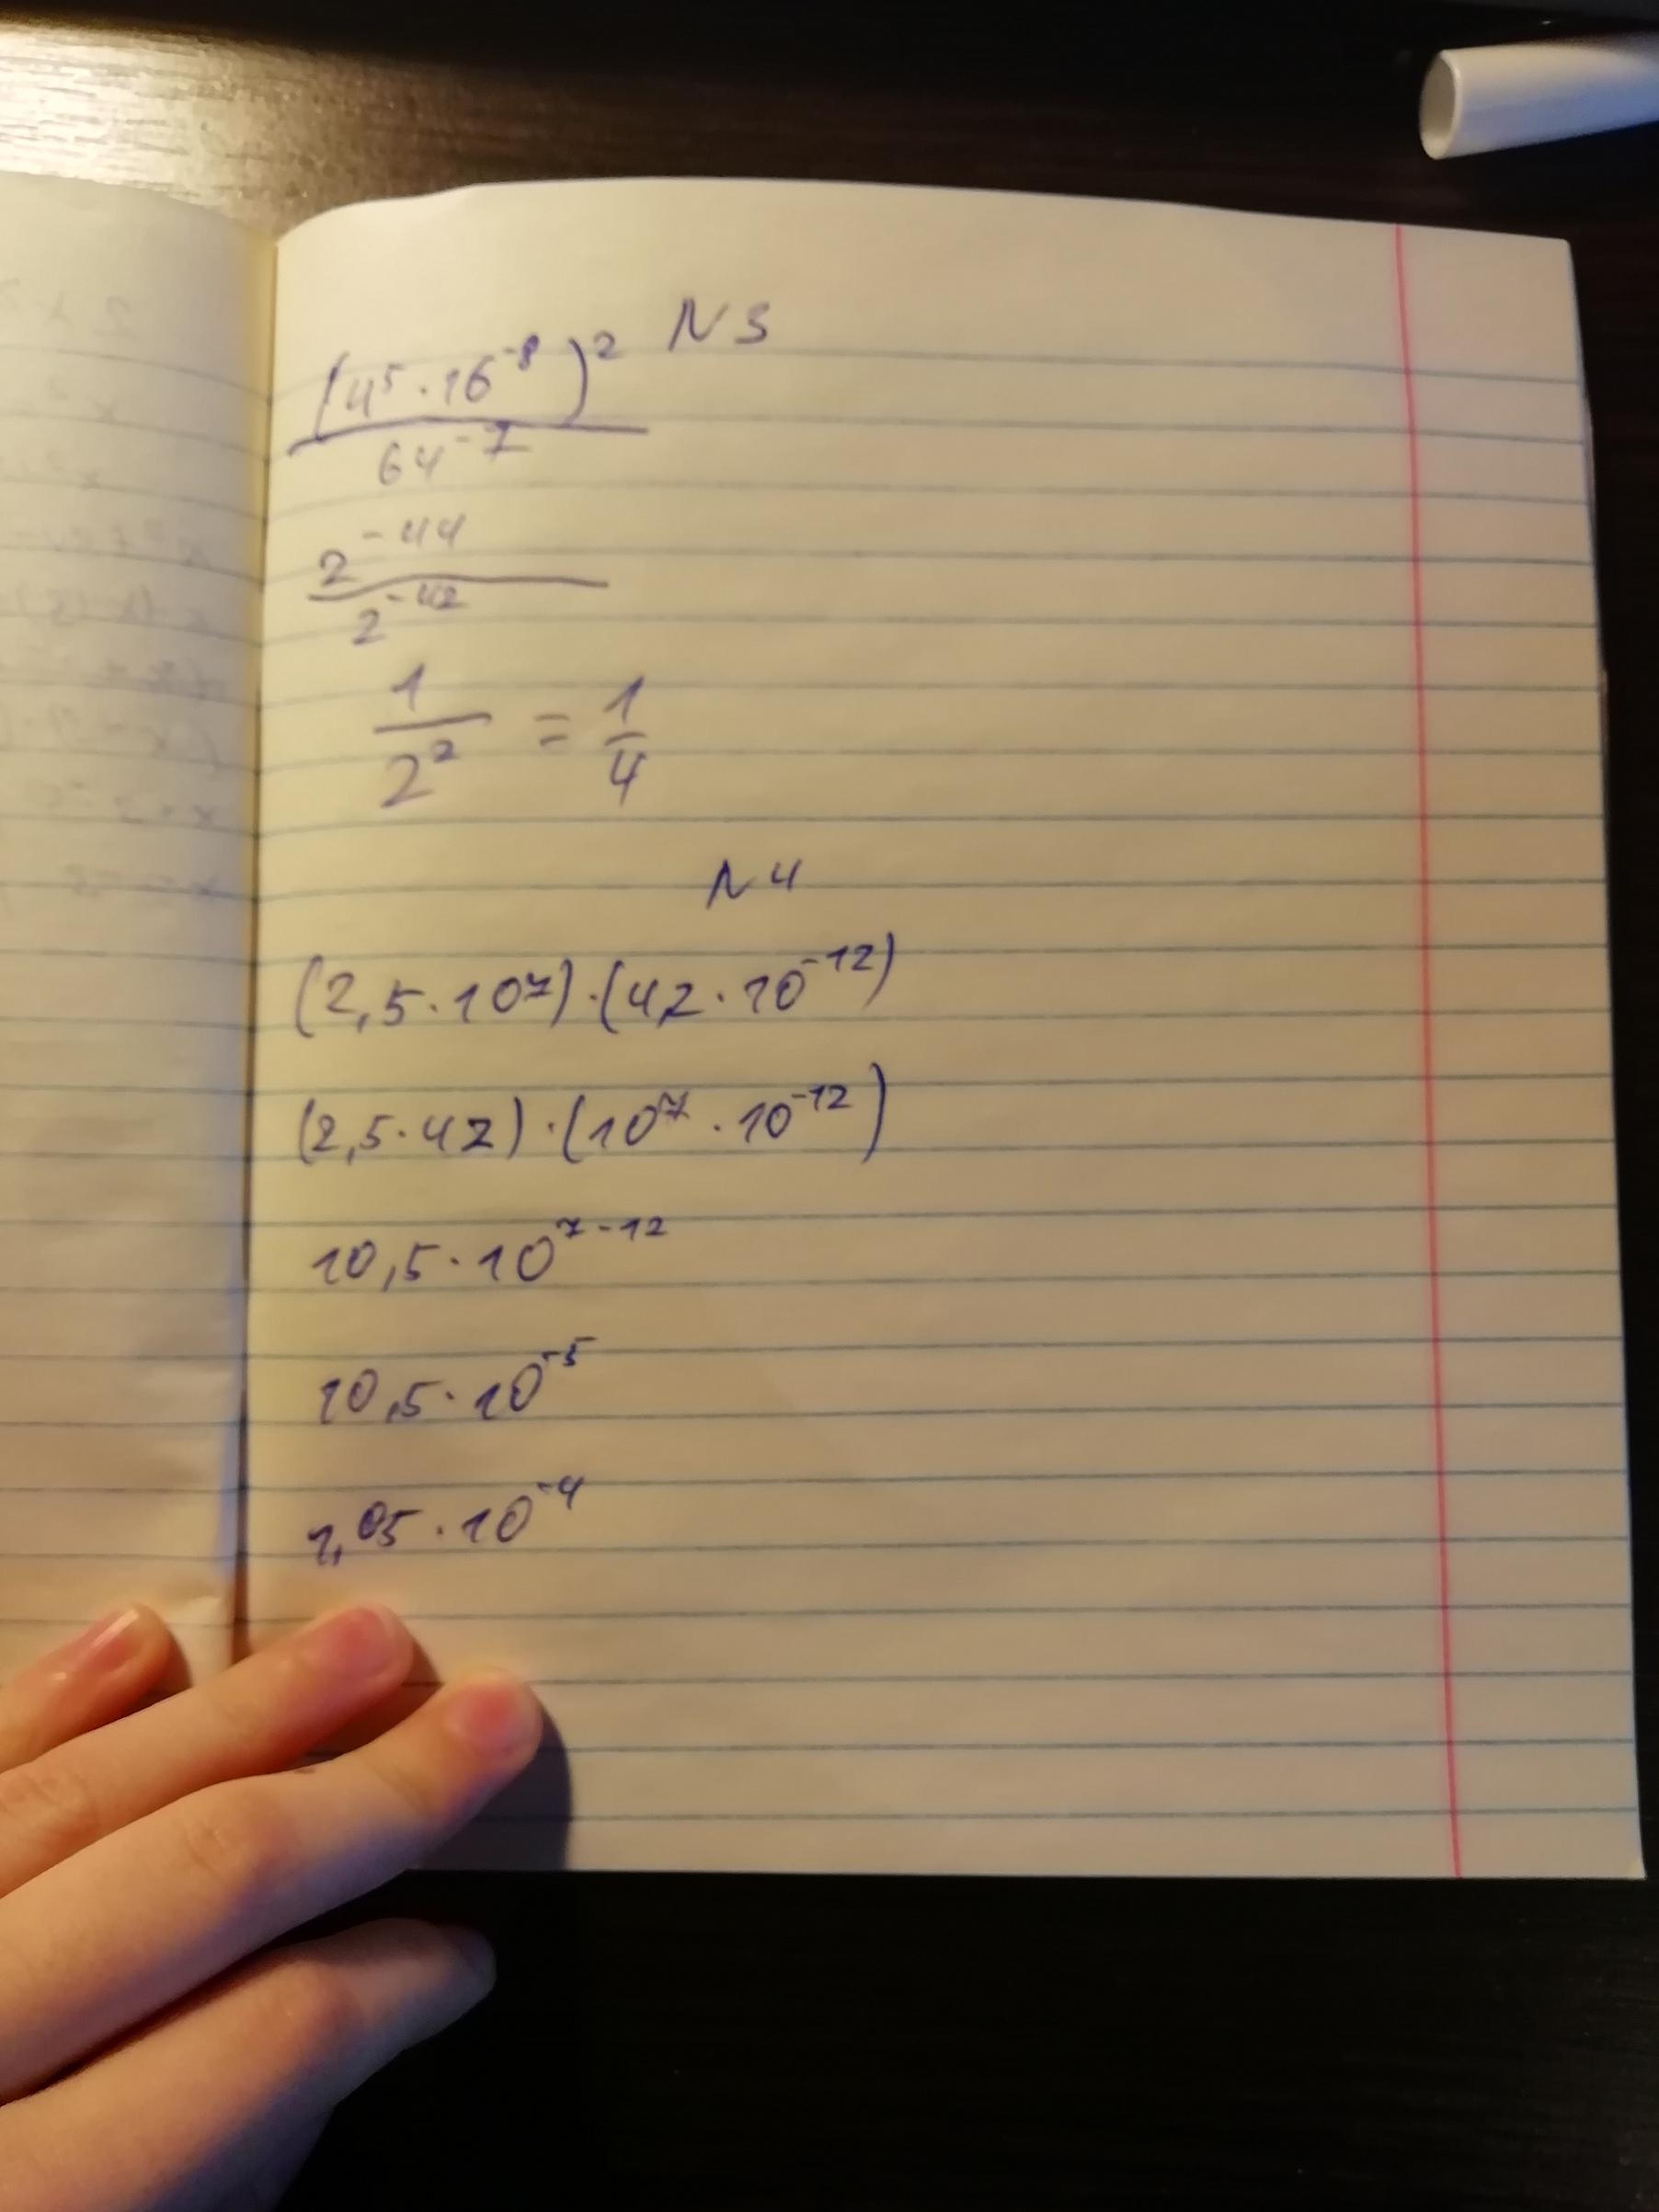 N3
(4⁵·16⁻⁸)²
64⁻⁷
2⁻⁴⁴
2⁻⁴²
1
2² = 1
4
N4
(2,5·10⁷)·(4,2·10⁻¹²)
(2,5·42)·(10⁷·10⁻¹²)
10,5·10⁷⁻¹²
10,5·10⁻⁵
1,05·10⁻⁴